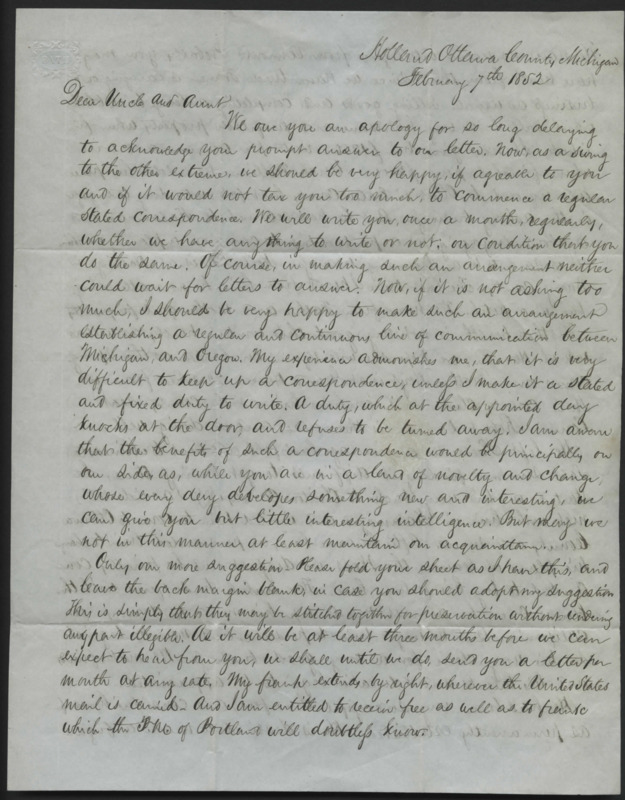 Holland Ottawa County, Michigan
February 7th 1852
Dear Uncle and Aunt
We owe you an apology for so long delaying
to acknowledge your prompt answer to our letter. Now, as a swing
to the other extreme, we should be very happy, if agreable to you
and if it would not tax you too much, to commence a regular
stated correspondence. We will write you, once a month, regularly,
whether we have anything to write or not, on condition that you
do the same. Of course, in making such an arrangement neither
could wait for letters to answer. Now, if it is not asking too
much, I should be very happy to make such an arrangement
establishing a regular and continuous line of communication between
Michigan, and Oregon. My experience admonishes me, that it is very
difficult to keep up a correspondence, unless I make it a stated
and fixed duty to write. A duty, which at the appointed day
knocks at the door, and refuses to be turned away. I am aware
that the benefits of such a correspondence would be principally on
our side, as, while you are in a land of novelty and change,
whose every day developes something new and interesting, we
can give you but little interesting intelligence. But may we
not in this manner at least maintain our acquaintance.
Only one more suggestion. Please fold your sheet as I have this, and
leave the back margin blank, in case you should adopt my suggestion
This is simply that they may be stitched together for preservation without rendering
any part illegible. As it will be at least three months before we can
expect to hear from you, we shall until we do, send you a letter per
month at any rate. My frank extends by right, wherever the United States
mail is carried. And I am entitled to receive free as well as to frank
which the P.M. of Portland will doubtless know.